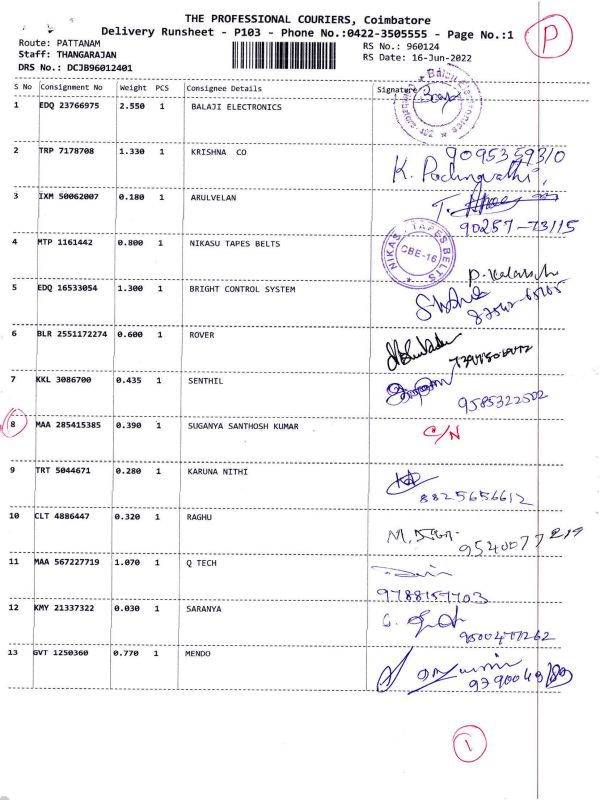 THE PROFESSIONAL COURIERS, Coimbatore
Delivery Runsheet - P103 - Phone No.:0422-3505555 - Page No.:1
P
Route: PATTANAM
RS No.: 960124
Staff: THANGARAJAN
RS Date: 16-Jun-2022
DRS No.: DCJB96012401
S No Consignment No Weight PCS Consignee Details Signature
1 EDQ 23766975 2.550 1 BALAJI ELECTRONICS
2 TRP 7178708 1.330 1 KRISHNA CO 9095359310
K.
3 IXM 50062007 0.180 1 ARULVELAN
90257-73115
4 MTP 1161442 0.800 1 NIKASU TAPES BELTS NIKASU TAPES BELTS CBE-16
5 EDQ 16533054 1.300 1 BRIGHT CONTROL SYSTEM
6 BLR 2551172274 0.600 1 ROVER
7 KKL 3086700 0.435 1 SENTHIL
9585322502
8 MAA 285415385 0.390 1 SUGANYA SANTHOSH KUMAR C/N
9 TRT 5044671 0.280 1 KARUNA NITHI
8825656612
10 CLT 4886447 0.320 1 RAGHU
9540077219
11 MAA 567227719 1.070 1 Q TECH
9788157703
12 KMY 21337322 0.030 1 SARANYA
9500477262
13 GVT 1250360 0.770 1 MENDO
1